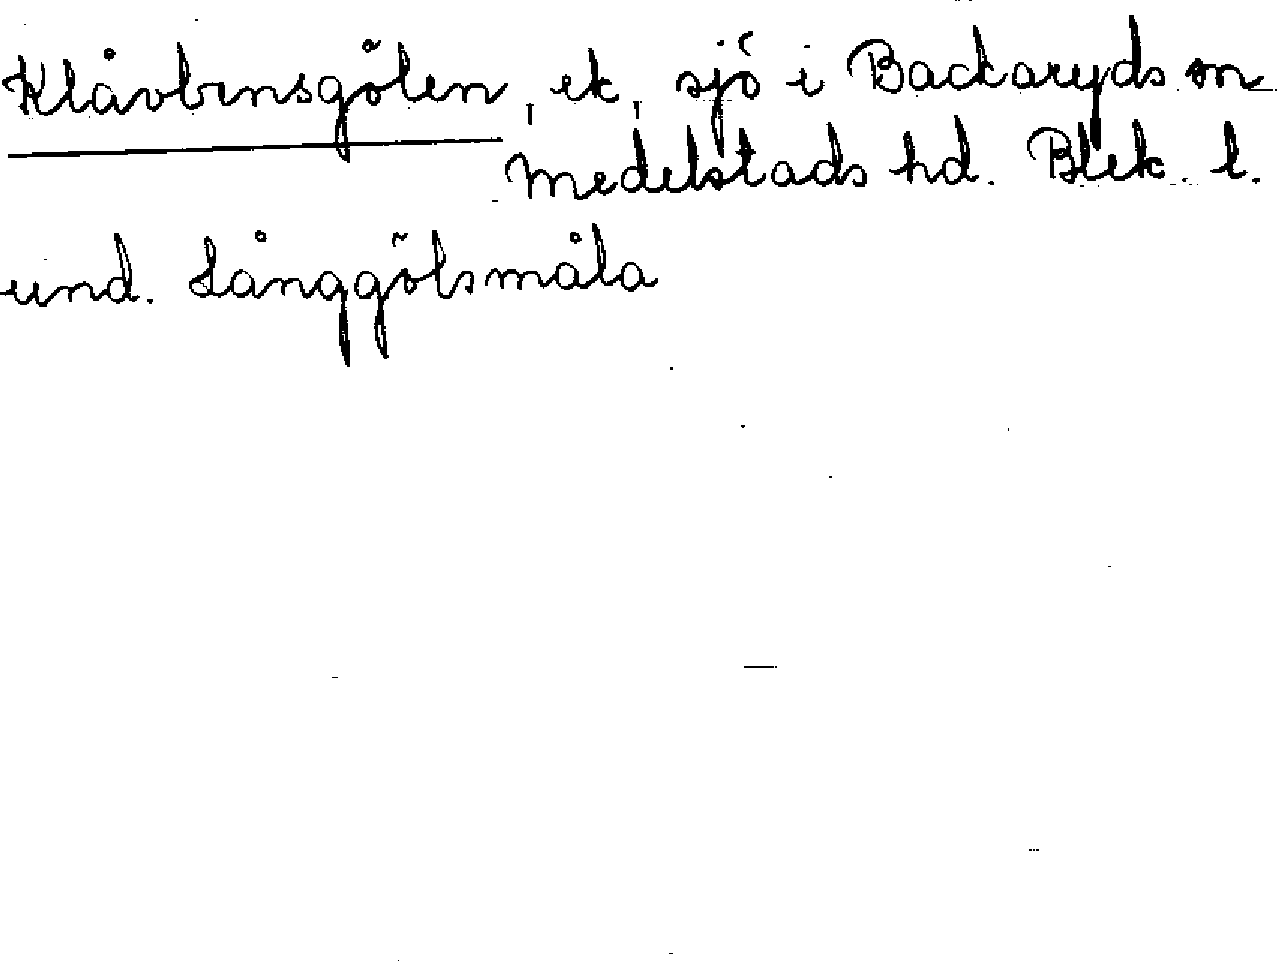 Klåvbensgölen, ek, sjö i Backaryds sn
Medelstads hd. Blek. l.
und. Långgölsmåla